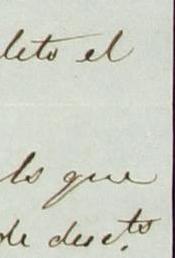 leto el
ls que
de desc.to